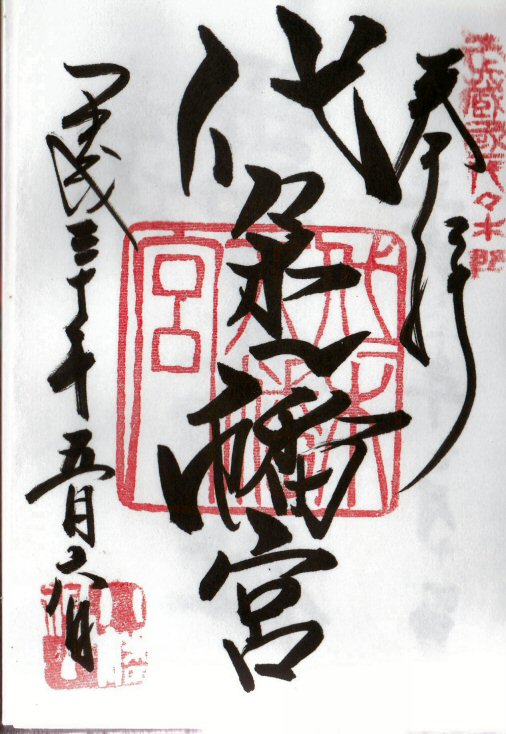 武蔵国代々木野
奉拝
代々木八幡宮
代々木八幡宮
平成三十年五月六日